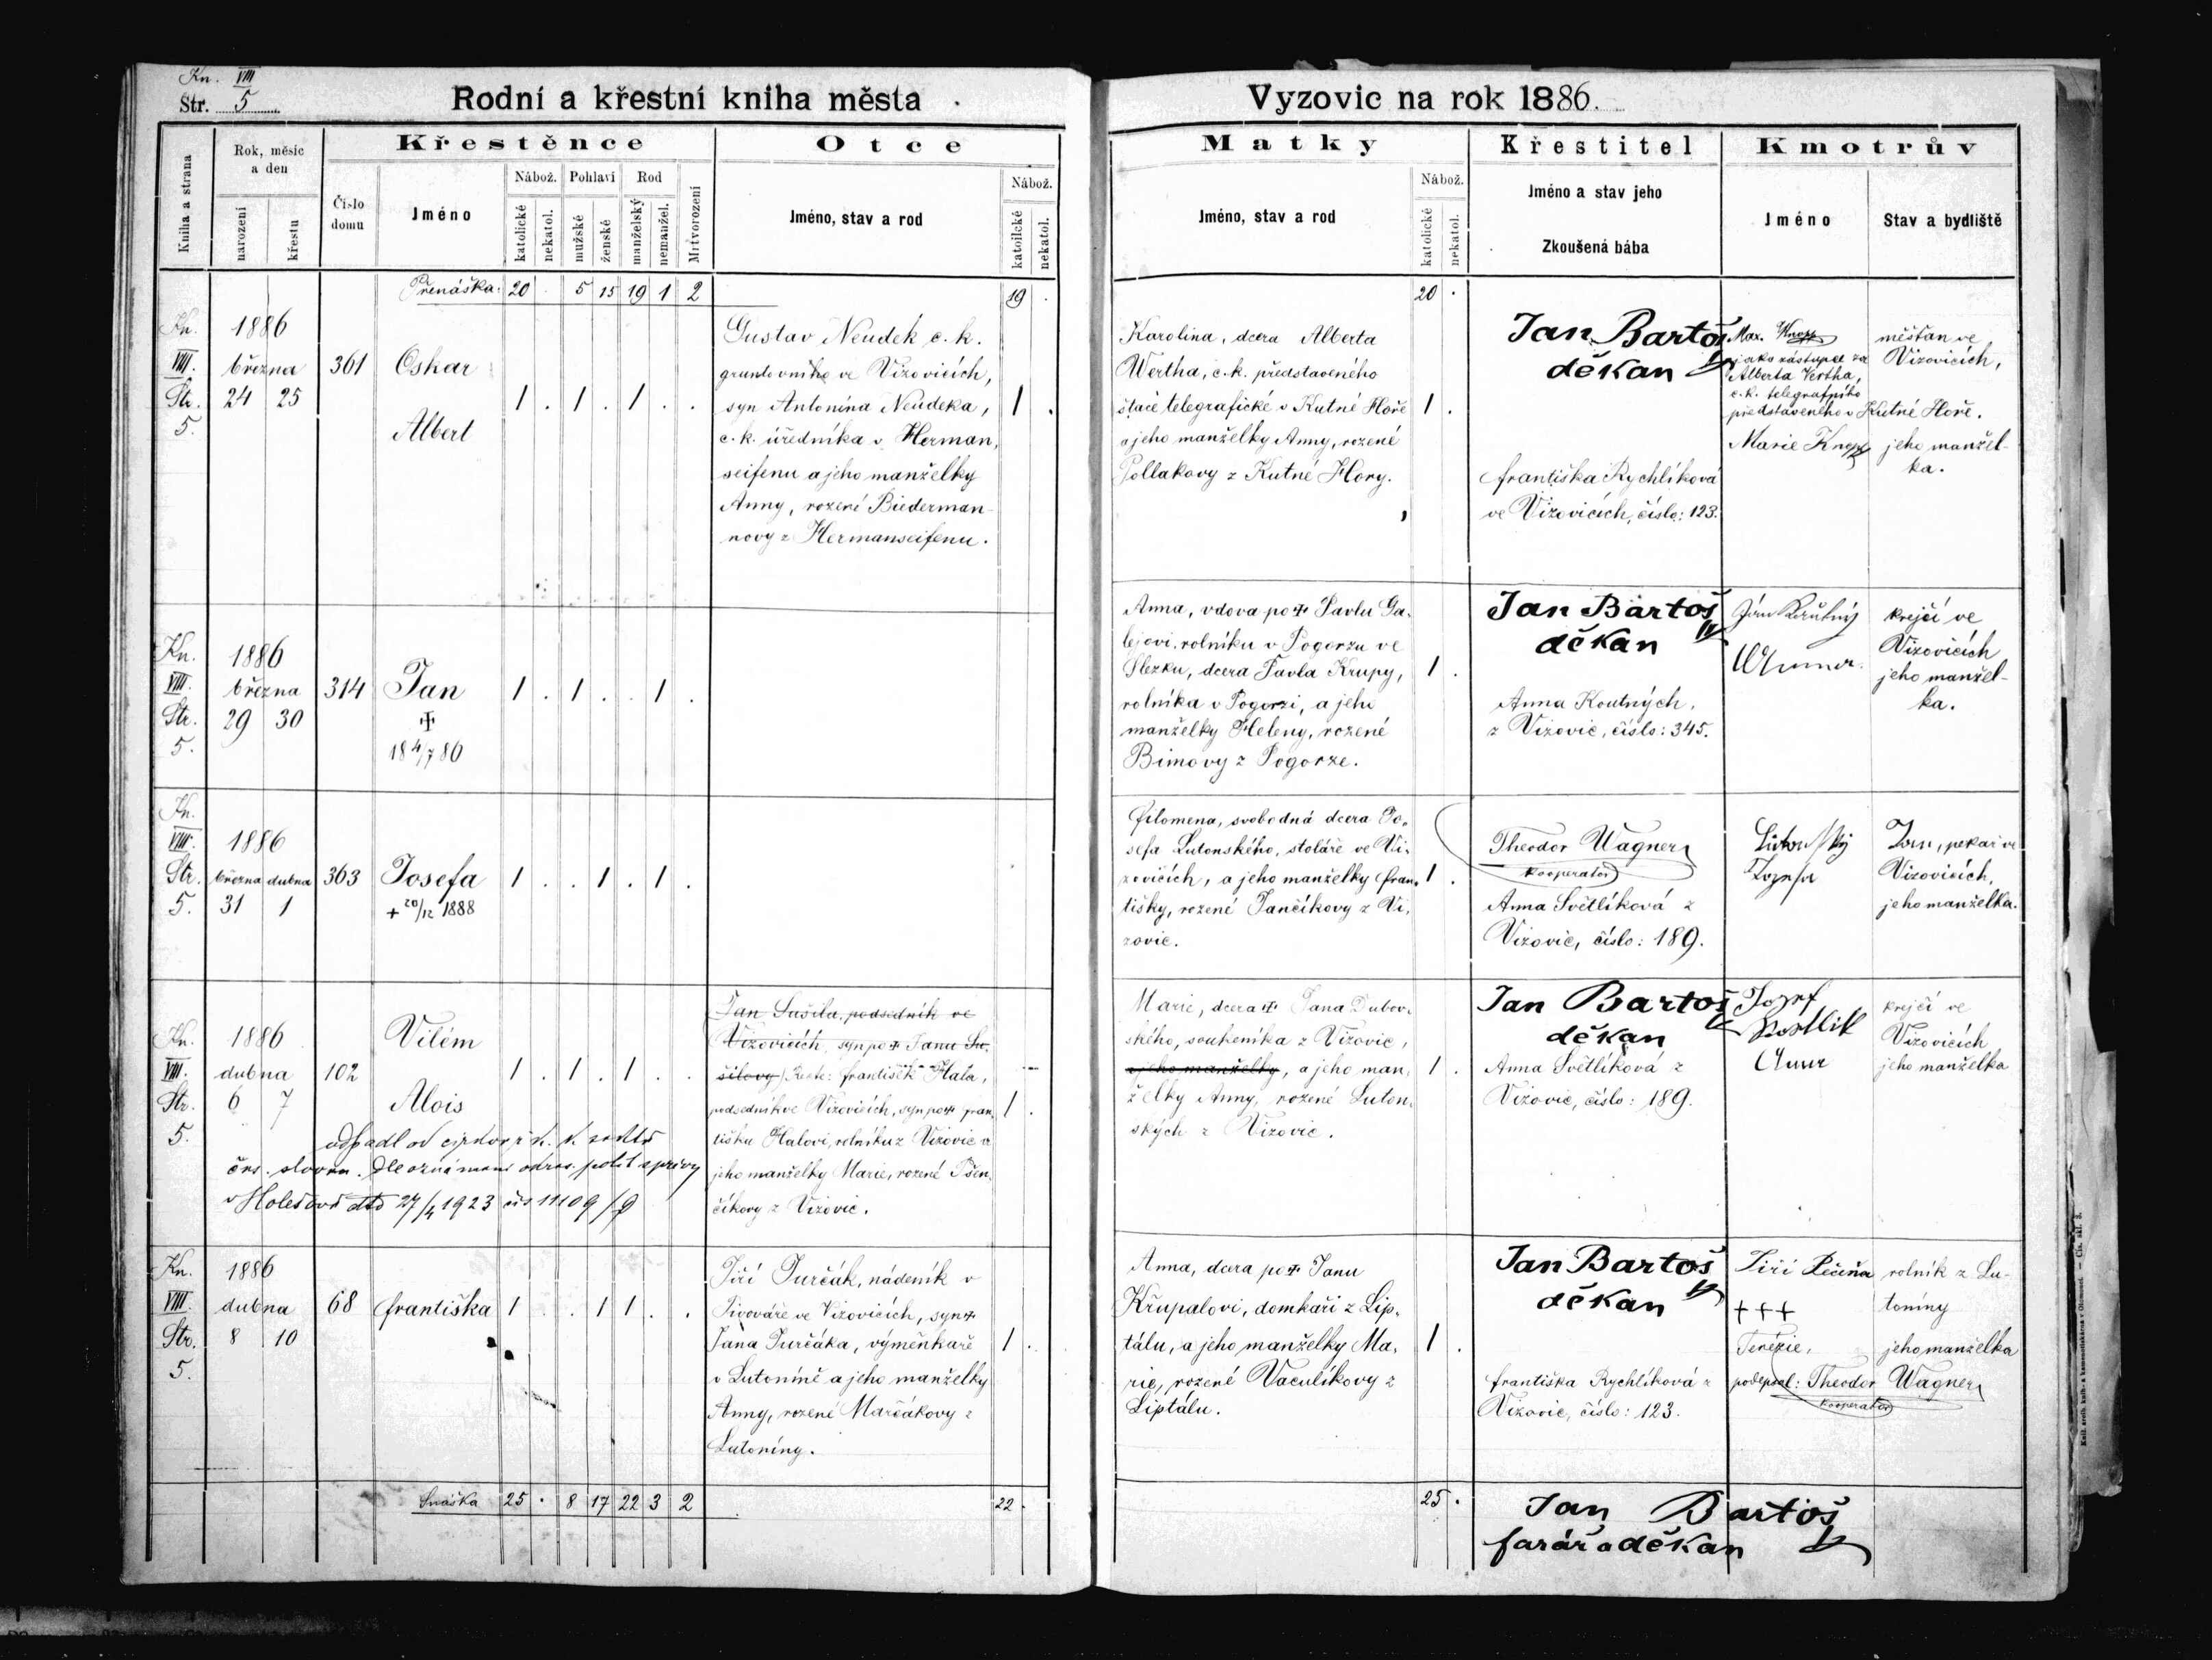 Kn. VIII
Str. 5
Rodní a křestní kniha města
Vyzovic na rok 1886.
Kniha a strana
Rok, měsíc
a den
narození
křestu
Číslo
domu
Křestěnce
Jméno
Nábož.
katolické
nekatol.
Pohlaví
mužské
ženské
Rod
manželský
nemanžel.
Mrtvorození
Otce
Jméno, stav a rod
Nábož.
katolické
nekatol.
Matky
Jméno, stav a rod
Nábož.
katolické
nekatol.
Křestitel
Jméno a stav jeho
Zkoušená bába
Kmotrův
Jméno
Stav a bydliště
Přenáška: 20 . 5 15 19 1 2
19 .
20 .
Kn.
VIII.
Str.
5.
1886
března
24 25
361
Oskar
Albert
1 . 1 . 1 . .
Gustav Neudek c. k.
gruntovního ve Vizovicích,
syn Antonína Neudeka,
c. k. úředníka v Herman,
seifenu a jeho manželky
Anny, rozené Biederman-
novy z Hermanseifenu.
1 .
Karolina, dcera Alberta
Wertha, c. k. představeného
štace telegrafické v Kutné Hoře
a jeho manželky Anny, rozené
Pollakovy z Kutné Hory.
1 .
Jan Bartoš
děkan
františka Rychlíková
ve Vizovicích, číslo: 123.
Max. Knopp
jako zástupce za
Alberta Vertha,
c. k. telegrafního
představeného v Kutné Hoře.
Marie Knopp
měšťan ve
Vizovicích,
jeho manžel-
ka.
Kn.
VIII.
Str.
5.
1886
března
29 30
314
Jan
✝
18 4/7 86
1 . 1 . . 1 .
Anna, vdova po ✝ Pavlu Ga-
lejovi, rolníku v Pogorzu ve
Slezku, dcera Pavla Krupy,
rolníka v Pogorzi, a jeho
manželky Heleny, rozené
Bimovy z Pogorze.
1 .
Jan Bartoš
děkan
Anna Koutných,
z Vizovic, číslo: 345.
krejčí ve
Vizovicích
jeho manžel-
ka.
Kn.
VIII.
Str.
5.
1886
března dubna
31 1
363
Josefa
+ 20/12 1888
1 . . 1 . 1 .
Filomena, svobodná dcera Jo-
sefa Lutonského, stoláře ve Vi-
zovicích, a jeho manželky fran-
tišky, rozené Jančíkovy z Vi-
zovic.
1 .
Theodor Wagner
kooperator
Anna Světlíková z
Vizovic, číslo: 189.
pekař ve
Vizovicích,
jeho manželka.
Kn.
VIII.
Str.
5.
1886
dubna
6 7
102
Vilém
Alois
1 . 1 . 1 . .
odpadl od církve ř. k.
čes. sloven. Dle oznámení okres. polit správy
v Holešově dto 27/4 1923 čís 11109/9
Jan Sušila, podsedník ve
Vizovicích, syn po ✝ Janu Su-
šilovy) Recte: František Hala,
podsedník ve Vizovicích, syn po ✝ fran-
tišku Halovi, rolníku z Vizovic a
jeho manželky Marie, rozené Pšen-
číkovy z Vizovic.
1 .
Marie, dcera ✝ Jana Dubov-
ského, soukeníka z Vizovic,
a jeho manželky, a jeho man-
želky Anny, rozené Luton-
ských z Vizovic.
1 .
Jan Bartoš
děkan
Anna Světlíková z
Vizovic, číslo: 189.
Jozef
krejčí ve
Vizovicích
jeho manželka
Kn.
VIII.
Str.
5.
1886
dubna
8 10
68
františka
1 . . 1 1 . .
Jiří Jurčák, nádeník v
Pivováře ve Vizovicích, syn ✝
Jana Jurčáka, výměnkaře
v Lutonině a jeho manželky
Anny, rozené Marčákovy z
Lutoniny.
1 .
Anna, dcera po ✝ Janu
Křupalovi, domkaři z Lip-
tálu, a jeho manželky Ma-
rie, rozené Vaculíkovy z
Liptálu.
1 .
Jan Bartoš
děkan
františka Rychlíková z
Vizovic, číslo: 123.
Jiří Pečeňa
+++
Terézie,
podepsal: Theodor Wagner
kooperator
rolník z Lu-
toniny
jeho manželka
Snáška 25 . 8 17 22 3 2
22 .
25 .
Jan Bartoš
farář a děkan